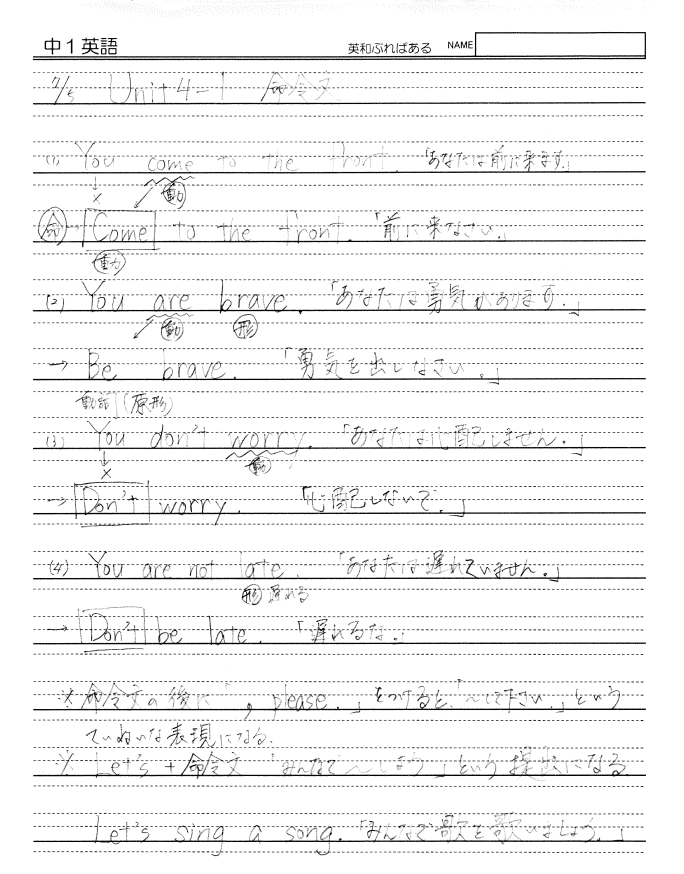 中1英語 英和ぷればある NAME
7/5 Unit 4-1 命令文
(1) You come to the front. 「あなたは前に来ます。」
↓ × 動
命→ Come to the front. 「前に来なさい。」
動
(2) You are brave. 「あなたは勇気があります。」
動 形
→ Be brave. 「勇気を出しなさい。」
動詞(原形)
(3) You don't worry. 「あなたは心配しません。」
↓ × 動
→ Don't worry. 「心配しないで。」
(4) You are not late. 「あなたは遅れていません。」
形 遅れる
→ Don't be late. 「遅れるな。」
※ 命令文の後に「, please.」をつけると、「〜して下さい。」という
ていねいな表現になる.
※ Let's + 命令文 「みんなで〜しよう」という提案になる
Let's sing a song. 「みんなで歌を歌いましょう。」